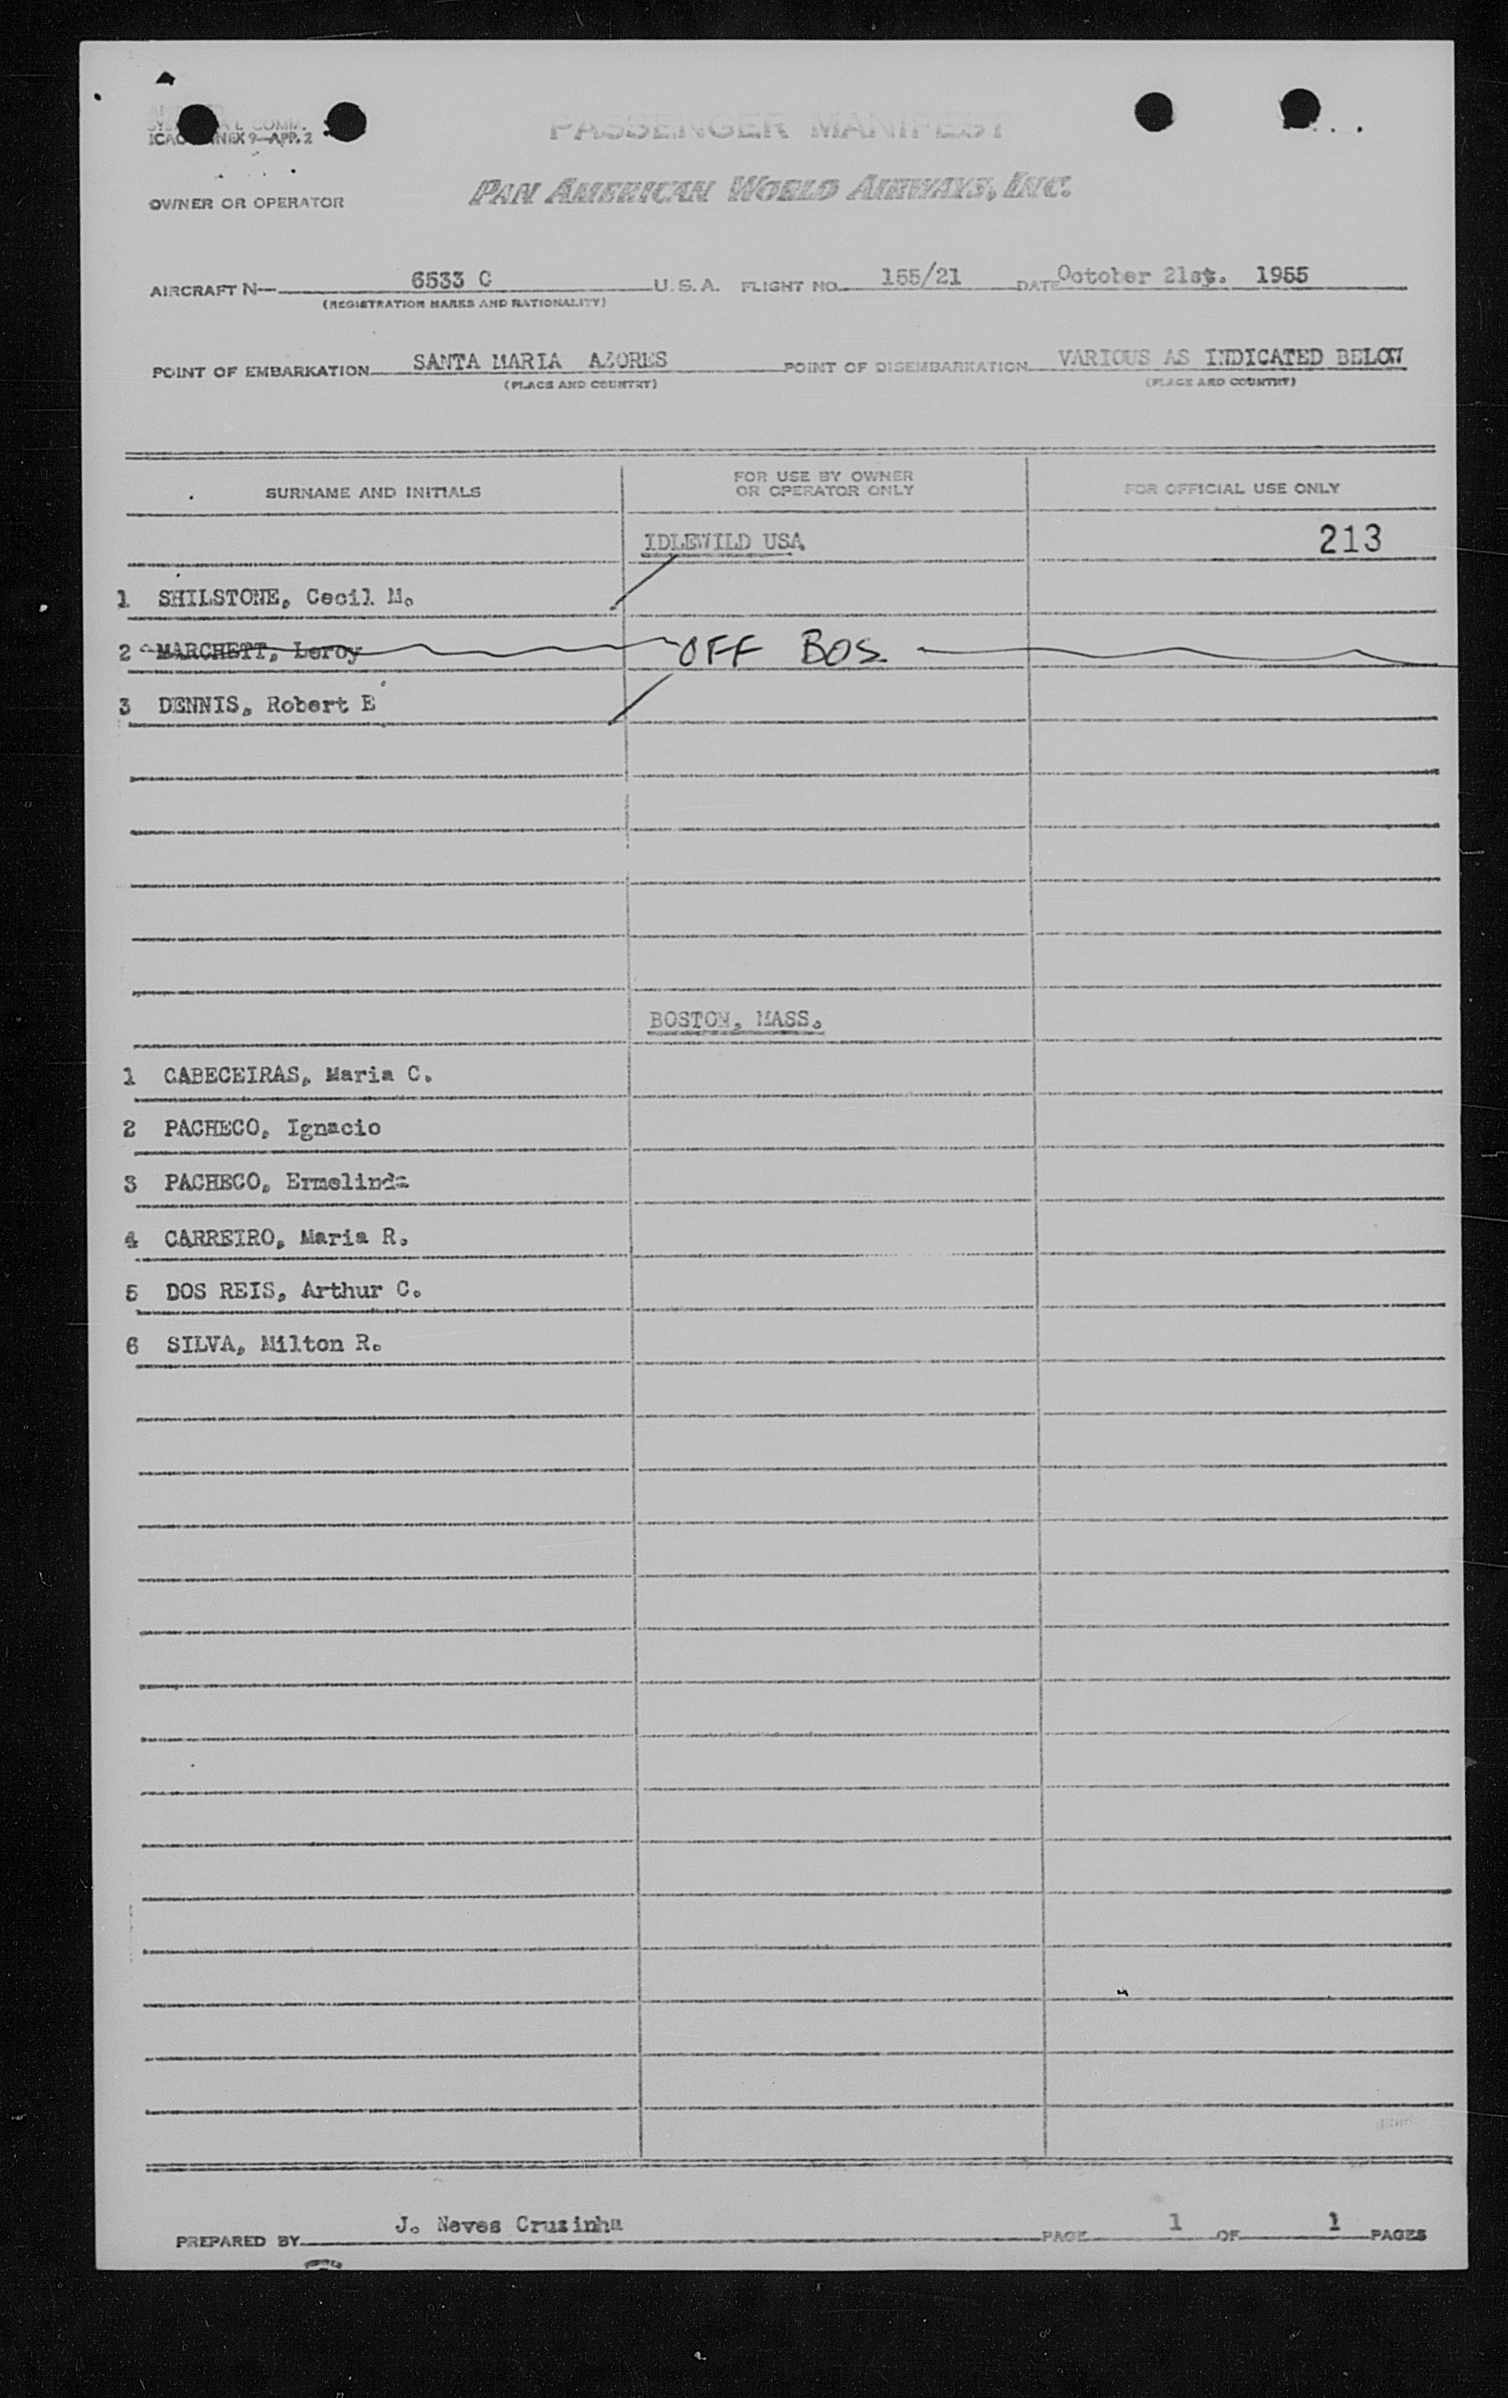 ICAO ANNEX 9—APP. 2
PASSENGER MANIFEST
OWNER OR OPERATOR
PAN AMERICAN WORLD AIRWAYS, INC.
AIRCRAFT N— 6533 C U. S. A. FLIGHT NO. 155/21 DATE October 21st. 1955
(REGISTRATION MARKS AND NATIONALITY)
POINT OF EMBARKATION SANTA MARIA AZORES POINT OF DISEMBARKATION VARIOUS AS INDICATED BELOW
(PLACE AND COUNTRY) (PLACE AND COUNTRY)
SURNAME AND INITIALS FOR USE BY OWNER OR OPERATOR ONLY FOR OFFICIAL USE ONLY
IDLEWILD USA 213
1 SHILSTONE, Cecil M.
2 MARCHETT, Leroy OFF BOS
3 DENNIS, Robert E
BOSTON, MASS.
1 CABECEIRAS, Maria C.
2 PACHECO, Ignacio
3 PACHECO, Ermelinda
4 CARREIRO, Maria R.
5 DOS REIS, Arthur C.
6 SILVA, Milton R.
PREPARED BY J. Neves Cruzinha PAGE 1 OF 1 PAGES